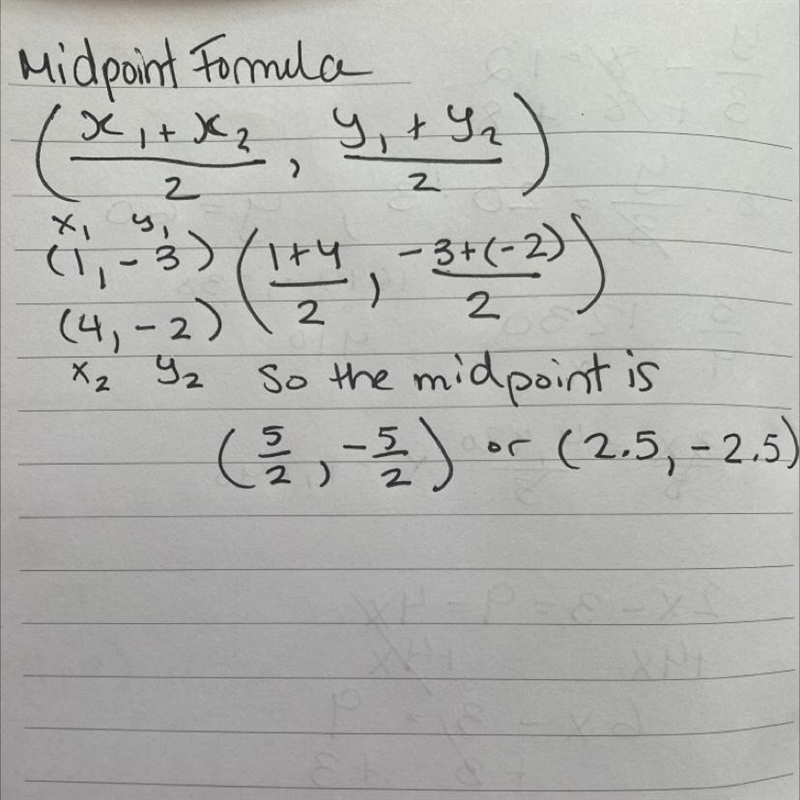 Midpoint Formula
( x₁ + x₂ / 2 , y₁ + y₂ / 2 )
x₁ y₁
(1, -3) ( 1+4 / 2 , -3+(-2) / 2 )
(4, -2)
x₂ y₂ So the midpoint is
( 5/2 , -5/2 ) or (2.5, -2.5)